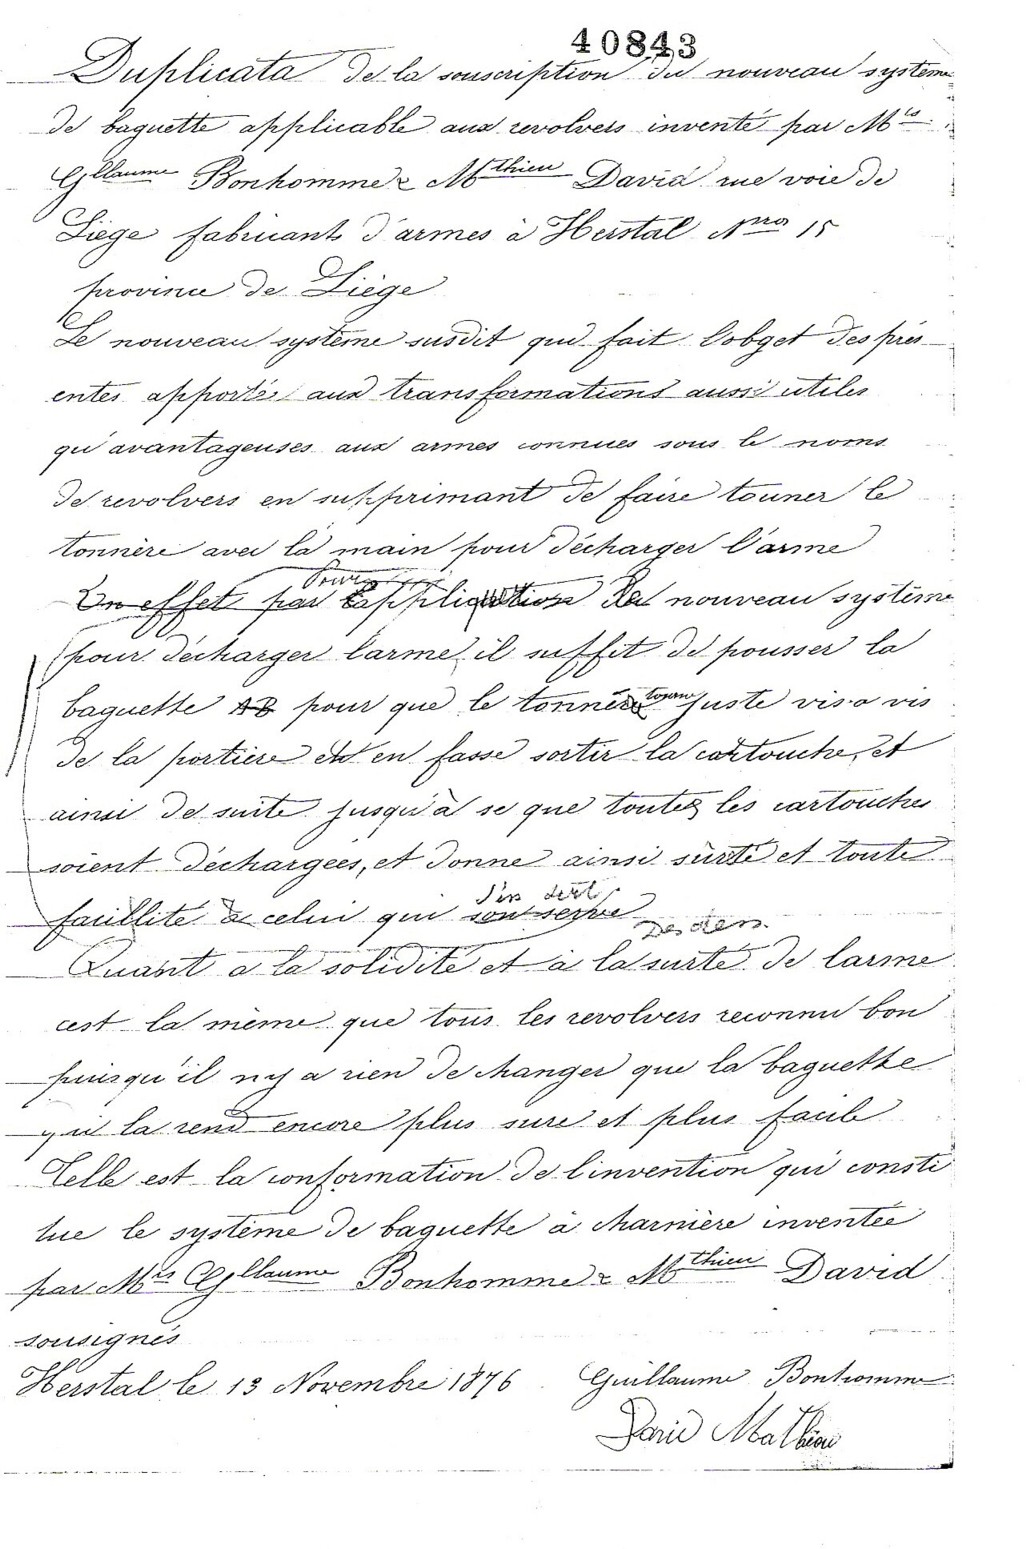 40843
Duplicata de la souscription du nouveau système
de baguette applicable aux revolvers inventé par Mrs
Gllaume Bonhomme & Mthieu David rue voie de
Liége fabricants d'armes à Herstal Nros 15
province de Liége
Le nouveau système susdit qui fait l'obget des prés
entes apportés aux transformations aussi utiles
qu'avantageuses aux armes connues sous le noms
de revolvers en supprimant de faire touner le
tonnère avec la main pour décharger l'arme
Pour
En effet par l'application de nouveau système
pour décharger l'arme il suffit de pousser la
baguette AB pour que le tonnère tourne juste vis a vis
de la portière et en fasse sortir la cartouche, et
ainsi de suite jusqu'à se que toutes les cartouches
soient déchargées, et donne ainsi sùrté et toute
facillité à celui qui s'en sert
son serve
Quant a la solidité et à la surté de larme
cest la même que tous les revolvers reconnu bon
puisqu'il ny a rien de changer que la baguette
qui la rend encore plus sure et plus facile
Telle est la conformation de l'invention qui consti
tue le système de baguette à charnière inventée
par Mrs Gllaume Bonhomme & Mthieu David
sousignés
Herstal le 13 Novembre 1876 Guillaume Bonhomme
David Mathieu